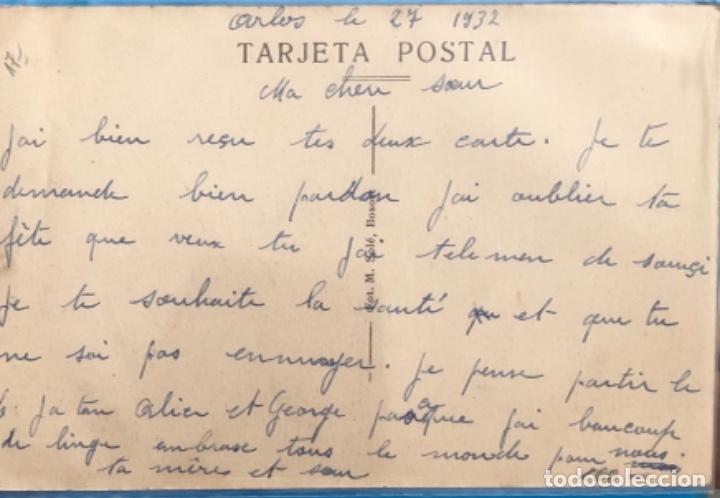 le 27 1932
17
TARJETA POSTAL
Ma cher sœur
J'ai bien reçu tes deux carte. Je te
demande bien pardon J'ai oublier ta
fête que veux tu J'ai telemen de
Je te souhaite la santé et que tu
ne soi pas ennuyer. Je pense partir le
Alice et George que j'ai baucoup
de linge enbrase tous le monde pour nous.
ta mères et sœur
Fot. M. Solé,
todocoleccion.net